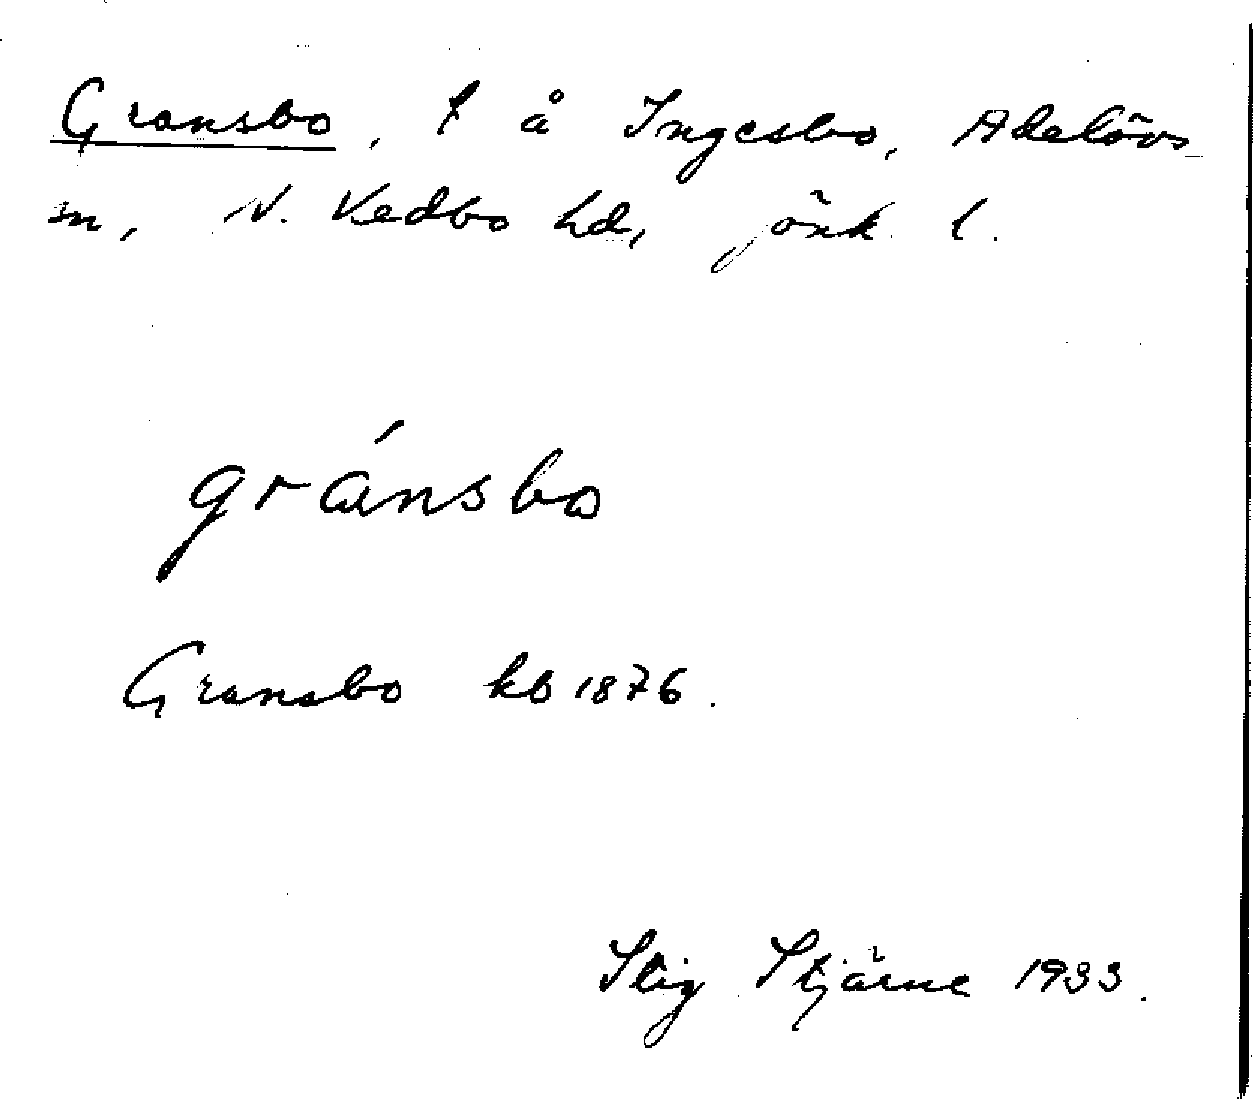 Gransbo, t å Ingesbo, Adelövs
sn, N. Vedbo hd, jönk. l.
gránsbo
Gransbo kb 1876.
Stig Stjärne 1933.